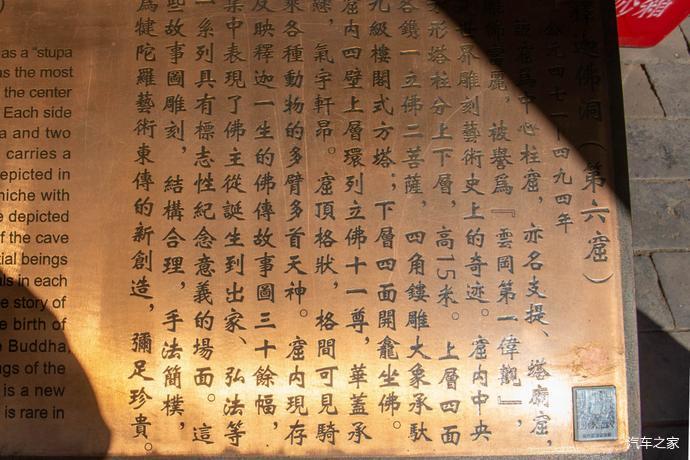 as a "stupa
as the most
the center
Each side
a and two
carries a
epicted in
niche with
e depicted
of the cave
tial beings
als in each
e story of
e birth of
e Buddha,
ngs of the
is a new
is rare in
釋迦佛洞（第六窟）
公元四七一—四九四年
該窟爲中心柱窟，亦名支提、塔廟窟，
富麗，被譽爲『雲岡第一偉觀』，
世界雕刻藝術史上的奇迹。窟内中央
方形塔柱分上下層，高15米。上層四面
各鐫一立佛二菩薩，四角鏤雕大象承馱
九級樓閣式方塔；下層四面開龕坐佛。
窟内四壁上層環列立佛十一尊，華蓋承
，氣宇軒昂。窟頂格狀，格間可見騎
乘各種動物的多臂多首天神。窟内現存
反映釋迦一生的佛傳故事圖三十餘幅，
集中表現了佛主從誕生到出家、弘法等
一系列具有標志性紀念意義的場面。這
些故事圖雕刻，結構合理，手法簡樸，
爲犍陀羅藝術東傳的新創造，彌足珍貴。
汽车之家